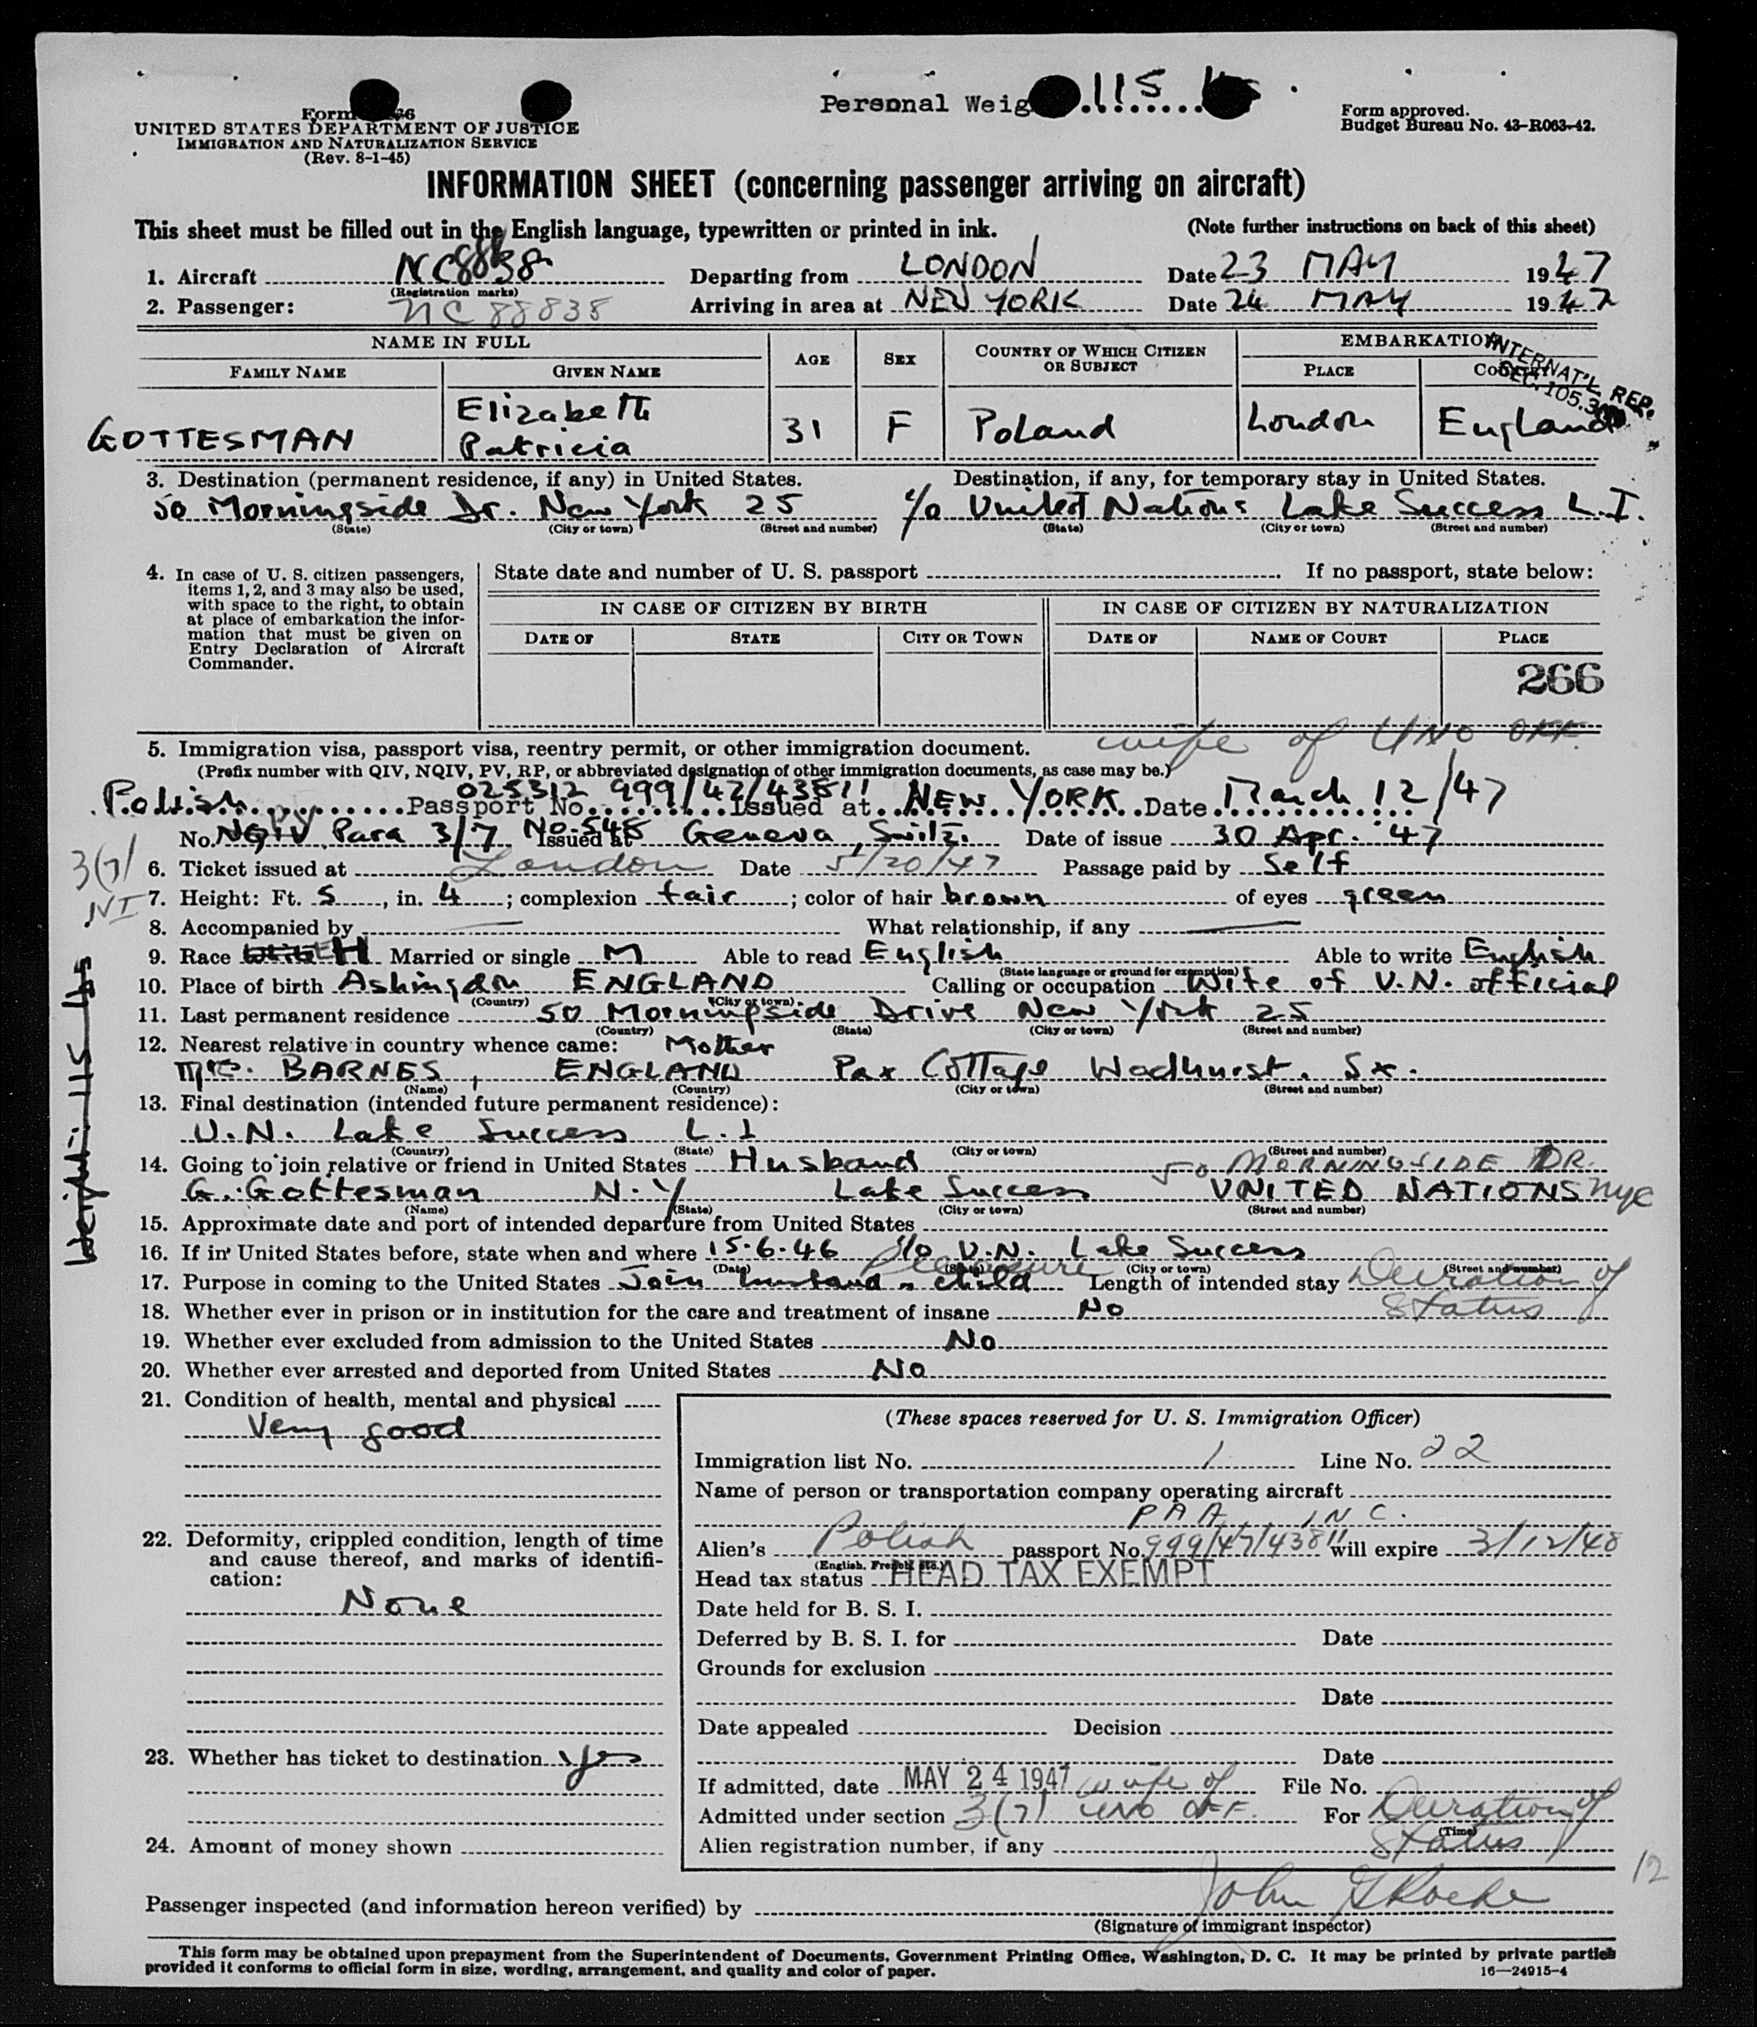 Personal Weig 115 lbs.
Form
UNITED STATES DEPARTMENT OF JUSTICE
IMMIGRATION AND NATURALIZATION SERVICE
(Rev. 8-1-45)
Form approved.
Budget Bureau No. 43-R063-42.
INFORMATION SHEET (concerning passenger arriving on aircraft)
This sheet must be filled out in the English language, typewritten or printed in ink. (Note further instructions on back of this sheet)
1. Aircraft NC8838 Departing from LONDON Date 23 MAY 1947
(Registration marks)
2. Passenger: NC 88838 Arriving in area at NEW YORK Date 24 MAY 1947
NAME IN FULL AGE SEX COUNTRY OF WHICH CITIZEN OR SUBJECT EMBARKATION
FAMILY NAME GIVEN NAME PLACE
INTERNAT'L REP.
SEC. 105.3
GOTTESMAN Elizabeth Patricia 31 F Poland London England
3. Destination (permanent residence, if any) in United States. Destination, if any, for temporary stay in United States.
50 Morningside Dr. New York 25 c/o United Nations Lake Success L.I.
(State) (City or town) (Street and number) (State) (City or town) (Street and number)
4. In case of U. S. citizen passengers, items 1, 2, and 3 may also be used, with space to the right, to obtain at place of embarkation the information that must be given on Entry Declaration of Aircraft Commander.
State date and number of U. S. passport If no passport, state below:
IN CASE OF CITIZEN BY BIRTH IN CASE OF CITIZEN BY NATURALIZATION
DATE OF STATE CITY OR TOWN DATE OF NAME OF COURT PLACE
266
wife of UNO OFF.
5. Immigration visa, passport visa, reentry permit, or other immigration document.
(Prefix number with QIV, NQIV, PV, RP, or abbreviated designation of other immigration documents, as case may be.)
Polish Passport No. 025312 999/47/43811 Issued at NEW YORK Date March 12/47
No. NQIV Para 3/7 No. 548 Issued at Geneva, Switz. Date of issue 30 Apr. 47
3(7)
NI
6. Ticket issued at London Date 5/20/47 Passage paid by Self
7. Height: Ft. 5, in. 4; complexion fair; color of hair brown of eyes green
8. Accompanied by — What relationship, if any —
9. Race H Married or single M Able to read English Able to write English
(State language or ground for exemption)
10. Place of birth Ashingdon ENGLAND Calling or occupation Wife of U.N. official
(Country) (City or town)
11. Last permanent residence 50 Morningside Drive New York 25
(Country) (State) (City or town) (Street and number)
12. Nearest relative in country whence came: Mother
Mrs. BARNES, ENGLAND Pax Cottage Wadhurst. Sx.
(Name) (Country) (City or town) (Street and number)
13. Final destination (intended future permanent residence):
U.N. Lake Success L.I
(Country) (State) (City or town) (Street and number)
14. Going to join relative or friend in United States Husband 50 MORNINGSIDE DR.
G. Gottesman N.Y Lake Success UNITED NATIONS NYC
(Name) (State) (City or town) (Street and number)
15. Approximate date and port of intended departure from United States
16. If in United States before, state when and where 15-6-46 c/o U.N. Lake Success
(Date) (State) (City or town) (Street and number)
Pleasure
17. Purpose in coming to the United States Join husband & child Length of intended stay Duration of
Status
18. Whether ever in prison or in institution for the care and treatment of insane No
19. Whether ever excluded from admission to the United States No
20. Whether ever arrested and deported from United States No
Weight: 115 lbs
21. Condition of health, mental and physical
Very good
22. Deformity, crippled condition, length of time and cause thereof, and marks of identification:
None
23. Whether has ticket to destination yes
24. Amount of money shown
(These spaces reserved for U. S. Immigration Officer)
Immigration list No. 1 Line No. 22
Name of person or transportation company operating aircraft
PAA INC.
Alien's Polish passport No. 999/47/43811 will expire 3/12/48
(English, French, etc.)
Head tax status HEAD TAX EXEMPT
Date held for B. S. I.
Deferred by B. S. I. for Date
Grounds for exclusion
Date
Date appealed Decision
Date
If admitted, date MAY 24 1947 wife of File No.
Admitted under section 3(7) UNO OFF. For Duration of
(Time)
Alien registration number, if any Status
12
Passenger inspected (and information hereon verified) by John G Roche
(Signature of immigrant inspector)
This form may be obtained upon prepayment from the Superintendent of Documents, Government Printing Office, Washington, D. C. It may be printed by private parties
provided it conforms to official form in size, wording, arrangement, and quality and color of paper. 16—24915-4